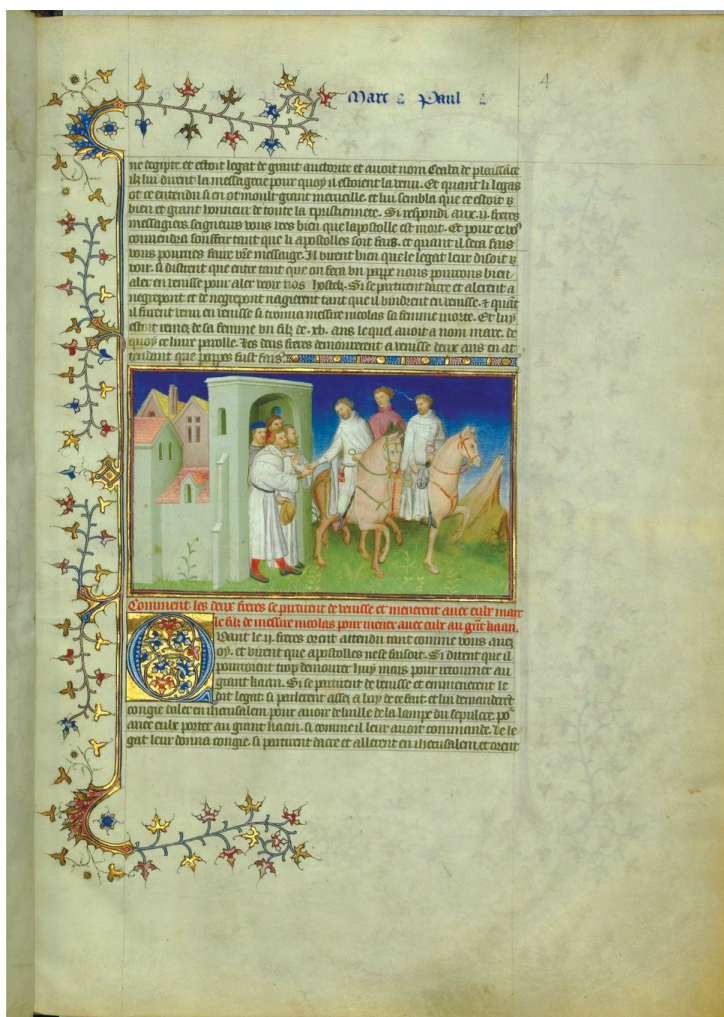 4
Marc & Paul
ne degipte. et estoit legat de grant auctorite et auoit nom Ceabz de plaisance
ilz lui dirent la messagerie pour quoy il estoient la venu. Et quant li legas
ot ce entendu si en ot moult grant merueille. et lui sembla que ce estoit
bien et grant honneur de toute la crestiennete. Si respondi aux .ij. freres
messagiers. seigneurs vous vees bien que lapostolle est mort. Et pour ce vo9
conuendra souffrir tant que li apostolles soit fais. et quant il sera fais
vous pourrez faire vre message. Il virent bien que le legat leur disoit
voir. si distrent que entre tant que on fera vn pappe nous pourrons bien
aler en venisse pour aler veoir nos hostelz. Si se partirent dacre et alerent a
negrepont et de negrepont nagierent tant que il vindrent en venisse. & quāt
il furent venu en venisse si trouua messire nicolas sa femme morte. Et luy
estoit remez de sa femme vn filz de .xv. ans lequel auoit a nom marc. de
quoy ce liure parolle. Les deus freres demourerent a venisse deux ans en at
tendant que pappes fust fais.
Comment les deux freres se partirent de venisse et menerent auec eulx marc
le filz de messire nicolas pour mener auec eulx au grāt kaan.
Quant le .ij. freres orent attendu tant comme vous auez
oy. et virent que apostolles ne se faisoit. Si dirent que il
pourroient trop demourer huy mais pour retourner au
grant kaan. Si se partirent de venisse et emmenerent le
dit legat. si parlerent assez a luy de ce fait. et lui demanderēt
congie daler en iherusalem pour auoir de luille de la lampe du sepulcre. po2
auec eulx porter au grant kaan. si comme il leur auoit commande. Le le
gat leur donna congie. si partirent dacre et allerent en iherusalem. et orent